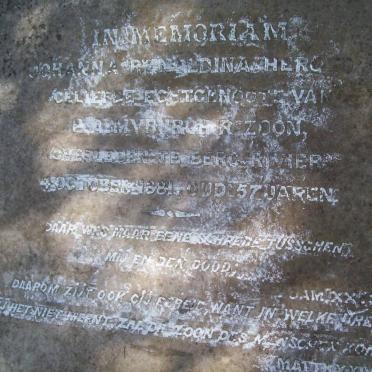 IN MEMORIAM
JOHANNA
GELIEFDE ECHTGENOOTE VAN
ZOON,
OVERLEDEN TE BERG RIVIER
4 OCTOBER 1881, OUD 57 JAREN
DAAR WAS MAAR EENE SCHREDE TUSSCHEN
MIJ EN DEN DOOD,
DAAROM ZIJT OOK GIJ BEREID, WANT IN WELKE URE
GIJ HET NIET MEENT, ZAL DE ZOON DES MENSCHEN KOM
MATTH